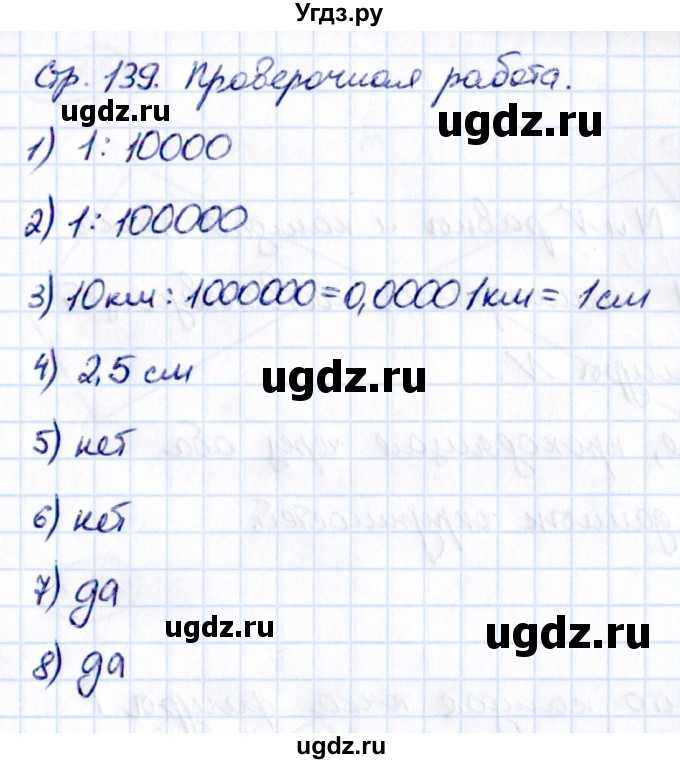 Угдз.ру
Стр. 139. Проверочная работа.
ugdz.ru ugdz.ru
1) 1 : 10000
2) 1 : 100000
3) 10 км : 1000000 = 0,00001 км = 1 см
4) 2,5 см
ugdz.ru
5) нет
6) нет
7) да
ugdz.ru ugdz.ru
8) да
ugdz.ru